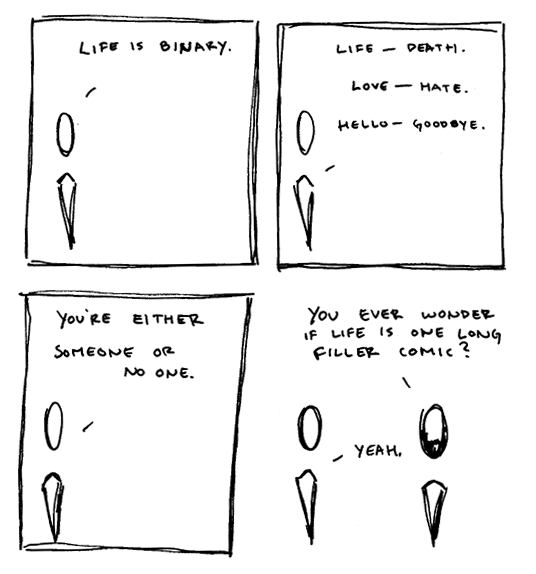 LIFE IS BINARY.
LIFE — DEATH.
LOVE — HATE.
HELLO — GOODBYE.
YOU'RE EITHER
SOMEONE OR
NO ONE.
YOU EVER WONDER
IF LIFE IS ONE LONG
FILLER COMIC?
YEAH.